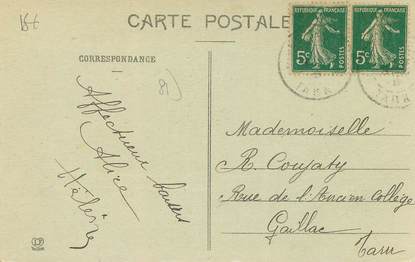 CARTE POSTALE
CORRESPONDANCE
RÉPUBLIQUE FRANÇAISE
5c
POSTES
RÉPUBLIQUE FRANÇAISE
5c
POSTES
TARN
TARN
81
Affectueux baisers
Alice
Hélène
Mademoiselle
R. Coujaty
Rue de l'Ancien Collège
Gaillac
Tarn